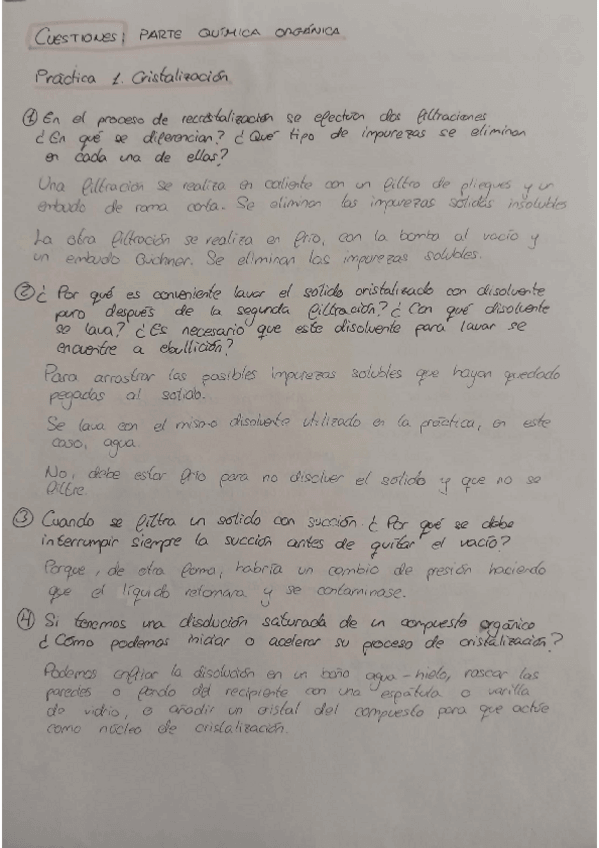 CUESTIONES; PARTE QUÍMICA ORGÁNICA
Práctica 1. Cristalización
① En el proceso de recristalización se efectúan dos filtraciones
¿En qué se diferencian? ¿Qué tipo de impurezas se eliminan
en cada una de ellas?
Una filtración se realiza en caliente con un filtro de pliegues y un
embudo de rama corta. Se eliminan las impurezas sólidas insolubles
La otra filtración se realiza en frío, con la bomba al vacío y
un embudo Büchner. Se eliminan las impurezas solubles.
② ¿Por qué es conveniente lavar el sólido cristalizado con disolvente
puro después de la segunda filtración? ¿Con qué disolvente
se lava? ¿Es necesario que este disolvente para lavar se
encuentre a ebullición?
Para arrastrar las posibles impurezas solubles que hayan quedado
pegadas al sólido.
Se lava con el mismo disolvente utilizado en la práctica, en este
caso, agua.
No, debe estar frío para no disolver el sólido y que no se
filtre.
③ Cuando se filtra un sólido con succión ¿Por qué se debe
interrumpir siempre la succión antes de quitar el vacío?
Porque, de otra forma, habría un cambio de presión haciendo
que el líquido retornara y se contaminase.
④ Si tenemos una disolución saturada de un compuesto orgánico
¿Cómo podemos iniciar o acelerar su proceso de cristalización?
Podemos enfriar la disolución en un baño agua-hielo, rascar las
paredes o fondo del recipiente con una espátula o varilla
de vidrio, o añadir un cristal del compuesto para que actúe
como núcleo de cristalización.